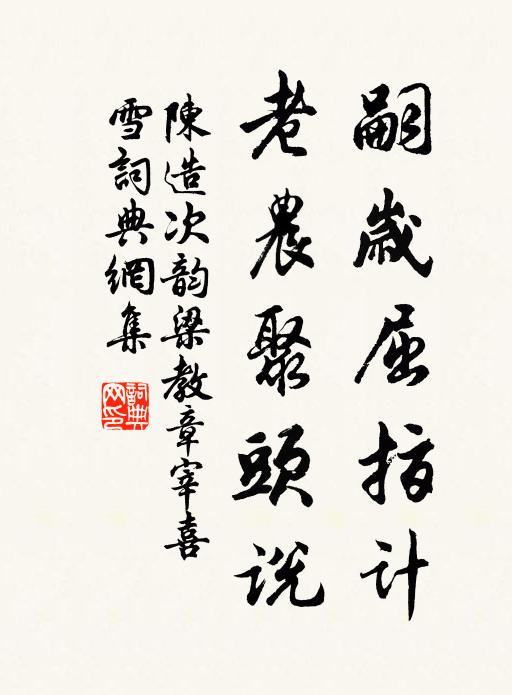 嗣歲屈指計
老農聚頭說
陳造次韵梁教章宰喜
雪詞典網集
詞典网印